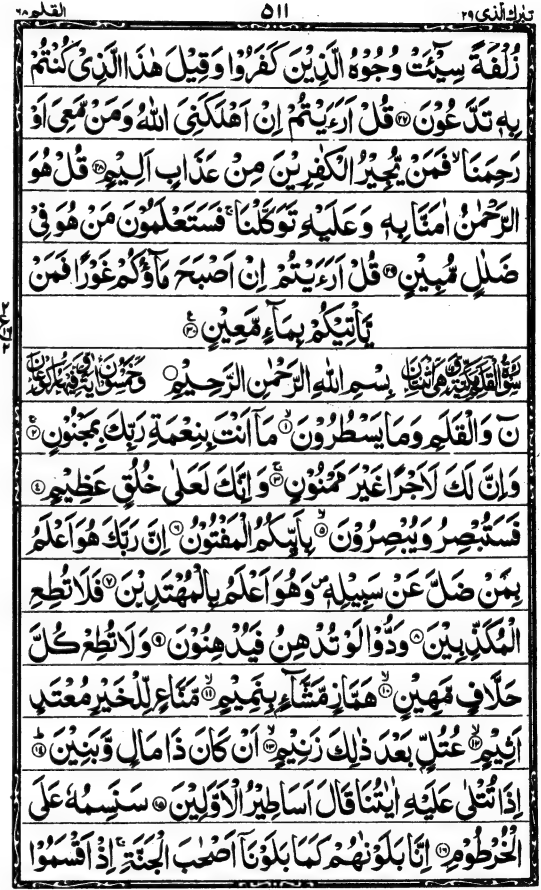 تبٰرك الّذى ٢٩ ٥١١ القلم ٦٨
زُلْفَةً سِيْٓـَٔتْ وُجُوْهُ الَّذِيْنَ كَفَرُوْا وَقِيْلَ هٰذَا الَّذِىْ كُنْتُمْ
بِهٖ تَدَّعُوْنَ ﴿٢٧﴾ قُلْ اَرَءَيْتُمْ اِنْ اَهْلَكَنِىَ اللّٰهُ وَمَنْ مَّعِىَ اَوْ
رَحِمَنَا ۙ فَمَنْ يُّجِيْرُ الْكٰفِرِيْنَ مِنْ عَذَابٍ اَلِيْمٍ ﴿٢٨﴾ قُلْ هُوَ
الرَّحْمٰنُ اٰمَنَّا بِهٖ وَعَلَيْهِ تَوَكَّلْنَا ۚ فَسَتَعْلَمُوْنَ مَنْ هُوَ فِىْ
ضَلٰلٍ مُّبِيْنٍ ﴿٢٩﴾ قُلْ اَرَءَيْتُمْ اِنْ اَصْبَحَ مَآؤُكُمْ غَوْرًا فَمَنْ
يَّاْتِيْكُمْ بِمَآءٍ مَّعِيْنٍ ﴿٣٠﴾
بِسْمِ اللّٰهِ الرَّحْمٰنِ الرَّحِيْمِ
نٓ وَالْقَلَمِ وَمَا يَسْطُرُوْنَ ﴿١﴾ مَآ اَنْتَ بِنِعْمَةِ رَبِّكَ بِمَجْنُوْنٍ ﴿٢﴾
وَاِنَّ لَكَ لَاَجْرًا غَيْرَ مَمْنُوْنٍ ﴿٣﴾ وَاِنَّكَ لَعَلٰى خُلُقٍ عَظِيْمٍ ﴿٤﴾
فَسَتُبْصِرُ وَيُبْصِرُوْنَ ﴿٥﴾ بِاَيِّىكُمُ الْمَفْتُوْنُ ﴿٦﴾ اِنَّ رَبَّكَ هُوَ اَعْلَمُ
بِمَنْ ضَلَّ عَنْ سَبِيْلِهٖ وَهُوَ اَعْلَمُ بِالْمُهْتَدِيْنَ ﴿٧﴾ فَلَا تُطِعِ
الْمُكَذِّبِيْنَ ﴿٨﴾ وَدُّوْا لَوْ تُدْهِنُ فَيُدْهِنُوْنَ ﴿٩﴾ وَلَا تُطِعْ كُلَّ
حَلَّافٍ مَّهِيْنٍ ﴿١٠﴾ هَمَّازٍ مَّشَّآءٍۢ بِنَمِيْمٍ ﴿١١﴾ مَّنَّاعٍ لِّلْخَيْرِ مُعْتَدٍ
اَثِيْمٍ ﴿١٢﴾ عُتُلٍّۢ بَعْدَ ذٰلِكَ زَنِيْمٍ ﴿١٣﴾ اَنْ كَانَ ذَا مَالٍ وَّبَنِيْنَ ﴿١٤﴾
اِذَا تُتْلٰى عَلَيْهِ اٰيٰتُنَا قَالَ اَسَاطِيْرُ الْاَوَّلِيْنَ ﴿١٥﴾ سَنَسِمُهٗ عَلَى
الْخُرْطُوْمِ ﴿١٦﴾ اِنَّا بَلَوْنٰهُمْ كَمَا بَلَوْنَآ اَصْحٰبَ الْجَنَّةِ ۚ اِذْ اَقْسَمُوْا